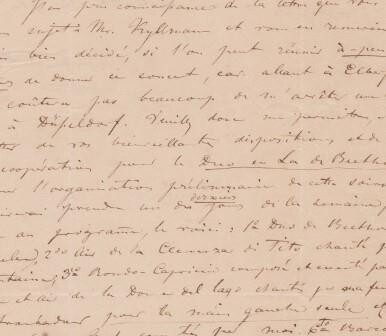 J'ai pris connaissance de la lettre que vous
sujet à Mr. Kyllmann et vous en remercie
bien décidé, si l'on peut réunir à peu
de donner ce concert, car allant à Elber
coûtera pas beaucoup de m'arrêter un
à Düsseldorf. Veuillez donc me permettre
de vos bienveillantes dispositions, et de
coopération pour le Duo en La de Beeth
l'organisation préliminaire de cette soirée
prendre un des derniers jours de la semaine,
au programme, le voici; 1º Duo de Beetho
2do Air de la Clemenza di Tito chanté p
3º Rondo-Capriccio composé et exécuté pa
et Air de la Donna del lago chantés par ma fem
pour la main gauche seule et
par moi.